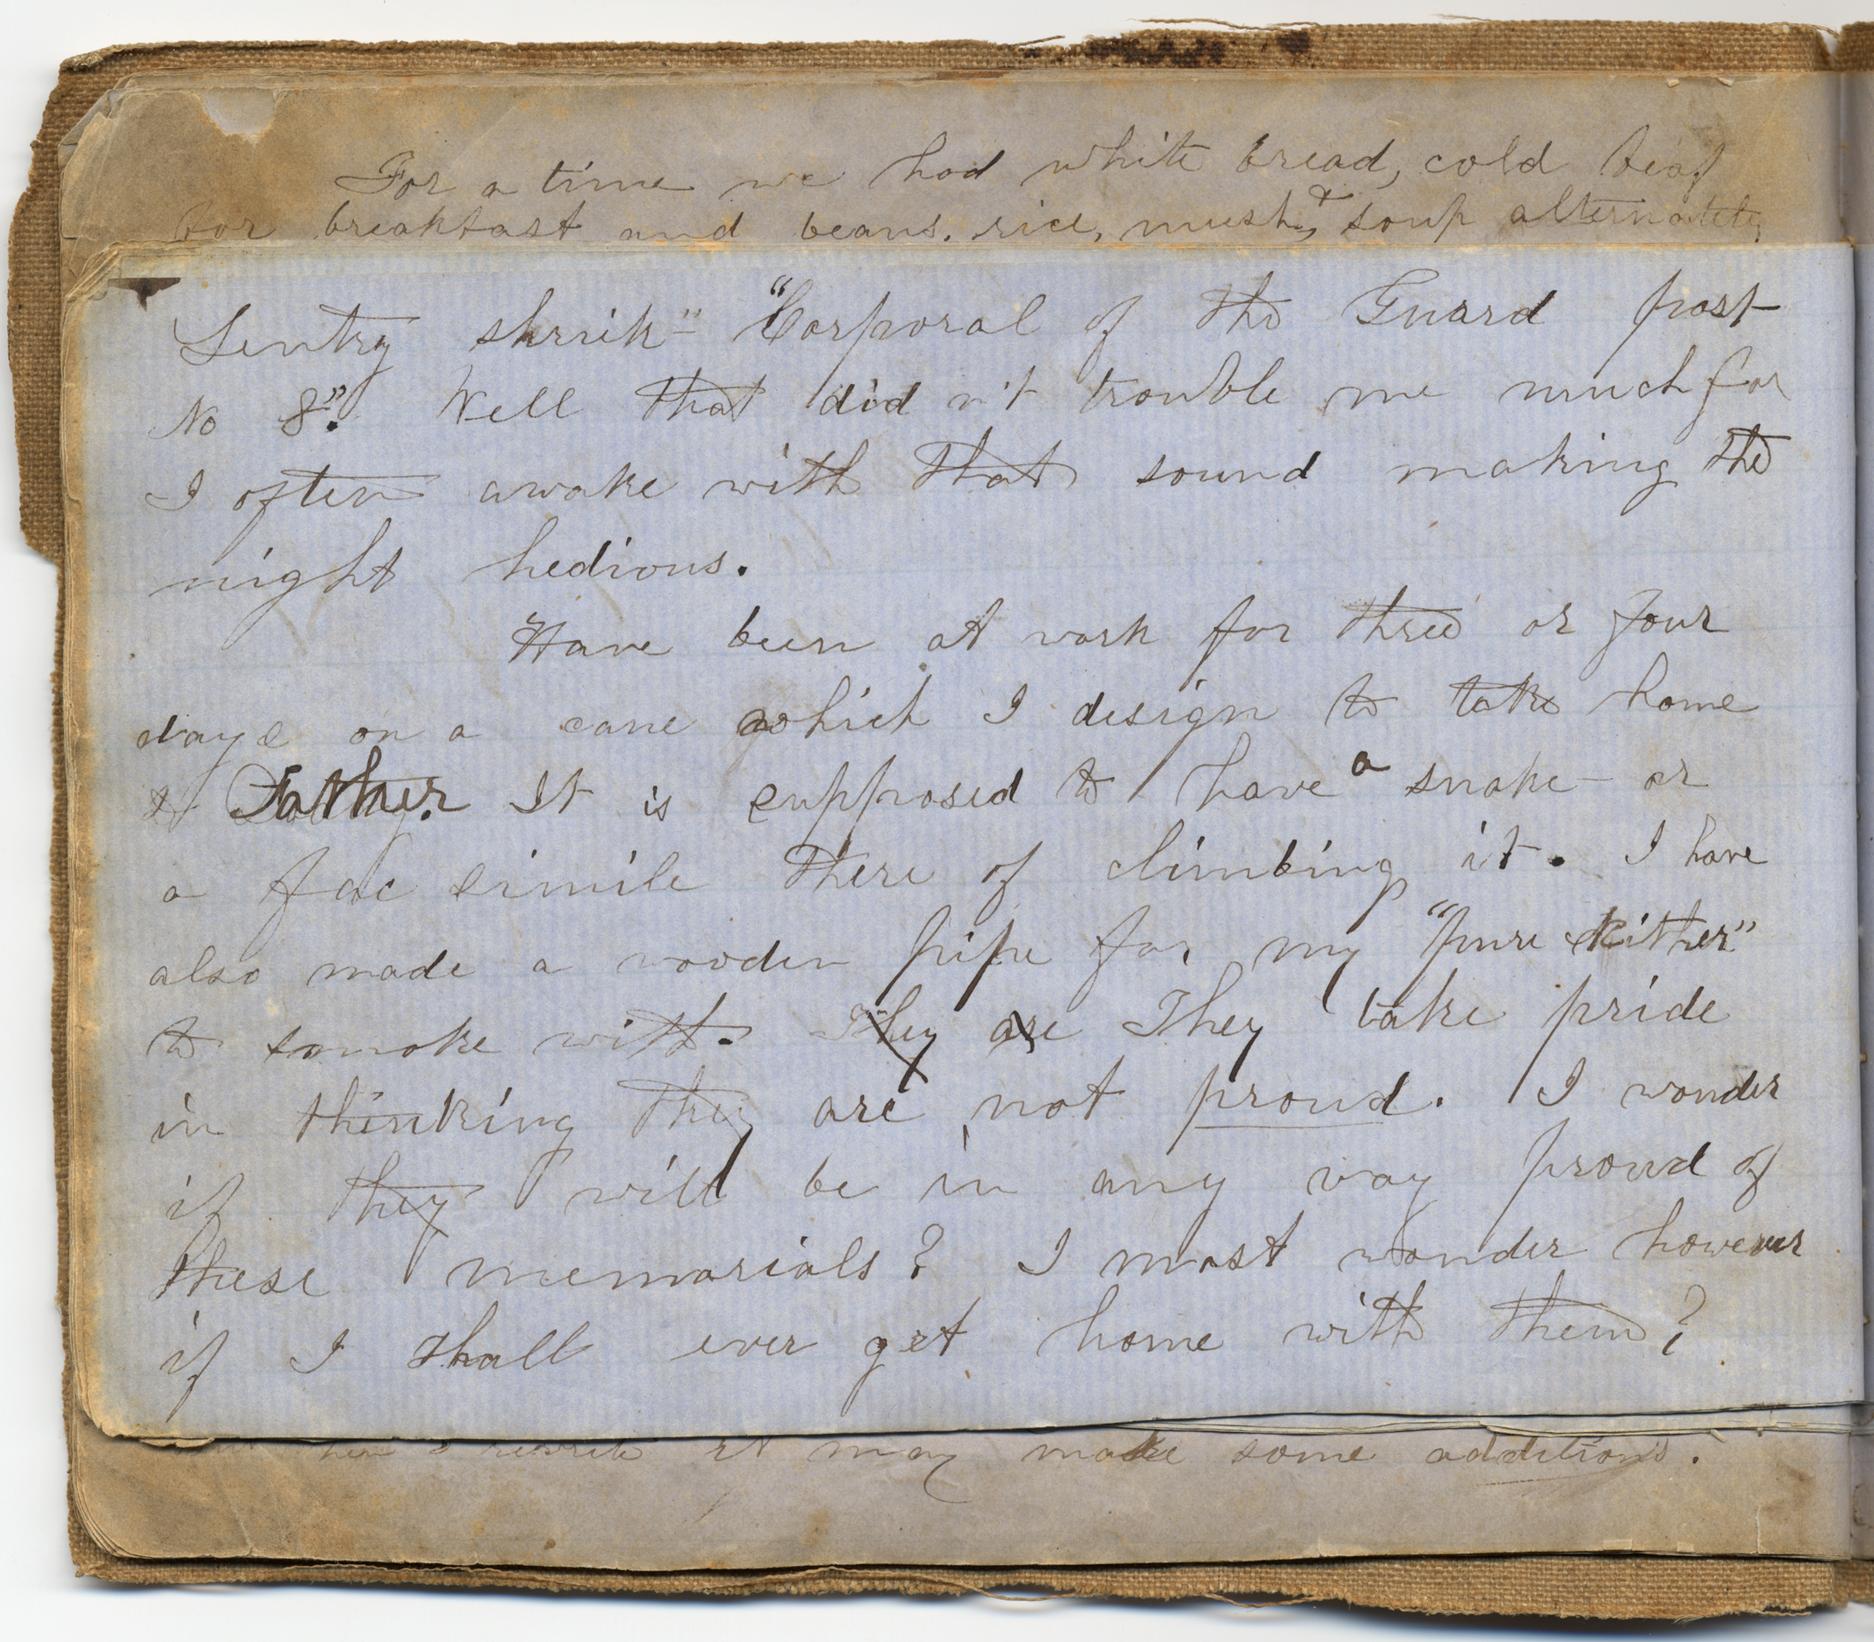 For a time we had white bread, cold beaf
for breakfast and beans, rice, mush, & soup alternately
Sentry shriek "Corporal of the Guard post
No 8". Well that did n't trouble me much for
I often awake with that sound making the
night hedious.
Have been at work for three or four
days on a cane which I design to take home
to Father. It is supposed to have a snake - or
a fac simile there of climbing it. I have
also made a wooden pipe for my "pure
to smoke with. They are They take pride
in thinking they are not proud. I wonder
if they will be in any way proud of
these memorials? I most wonder however
if I shall ever get home with them?
rewrite it may make some additions.